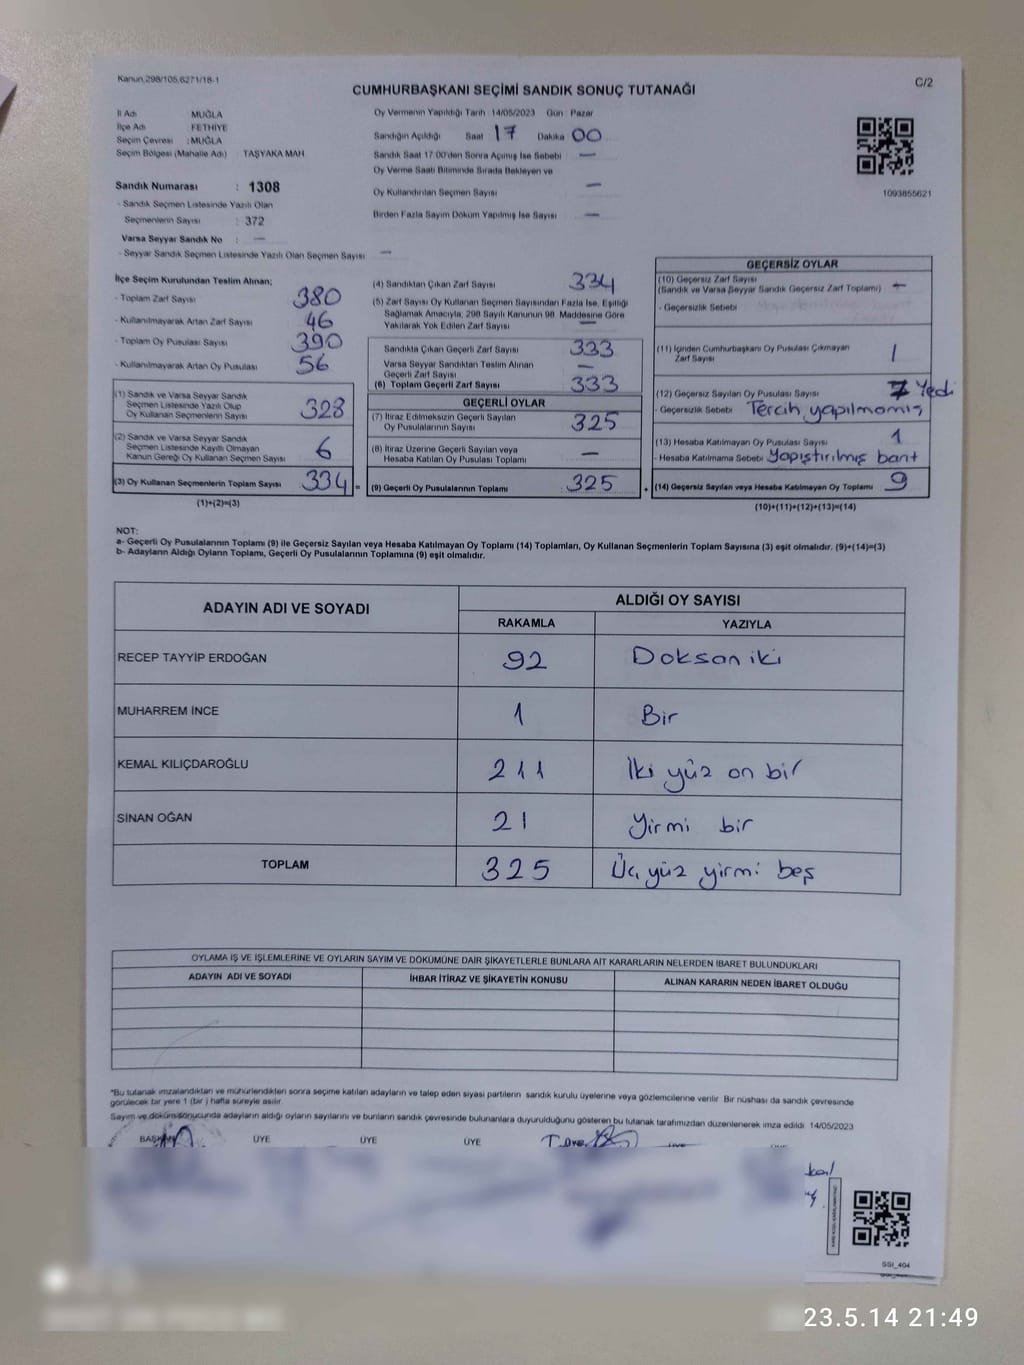 Kanun,298/105,6271/18-1
C/2
CUMHURBAŞKANI SEÇİMİ SANDIK SONUÇ TUTANAĞI
İl Adı MUĞLA
İlçe Adı FETHİYE
Seçim Çevresi : MUĞLA
Seçim Bölgesi (Mahalle Adı) : TAŞYAKA MAH
Sandık Numarası : 1308
- Sandık Seçmen Listesinde Yazılı Olan
Seçmenlerin Sayısı : 372
Varsa Seyyar Sandık No : —
- Seyyar Sandık Seçmen Listesinde Yazılı Olan Seçmen Sayısı —
Oy Vermenin Yapıldığı Tarih 14/05/2023 Gün Pazar
Sandığın Açıldığı Saat 17 Dakika 00
Sandık Saat 17:00'den Sonra Açımış İse Sebebi —
Oy Verme Saati Bitiminde Sırada Bekleyen ve
Oy Kullandırılan Seçmen Sayısı —
Birden Fazla Sayım Döküm Yapılmış İse Sayısı —
1093855621
İlçe Seçim Kurulundan Teslim Alınan;
- Toplam Zarf Sayısı 380
- Kullanılmayarak Artan Zarf Sayısı 46
- Toplam Oy Pusulası Sayısı 390
- Kullanılmayarak Artan Oy Pusulası 56
(1) Sandık ve Varsa Seyyar Sandık
Seçmen Listesinde Yazılı Olup
Oy Kullanan Seçmenlerin Sayısı 328
(2) Sandık ve Varsa Seyyar Sandık
Seçmen Listesinde Kayıtlı Olmayan
Kanun Gereği Oy Kullanan Seçmen Sayısı 6
(3) Oy Kullanan Seçmenlerin Toplam Sayısı 334 =
(1)+(2)=(3)
(4) Sandıktan Çıkan Zarf Sayısı 334
(5) Zarf Sayısı Oy Kullanan Seçmen Sayısından Fazla İse, Eşitliği
Sağlamak Amacıyla, 298 Sayılı Kanunun 98. Maddesine Göre
Yakılarak Yok Edilen Zarf Sayısı —
Sandıkta Çıkan Geçerli Zarf Sayısı 333
Varsa Seyyar Sandıktan Teslim Alınan
Geçerli Zarf Sayısı —
(6) Toplam Geçerli Zarf Sayısı 333
GEÇERLİ OYLAR
(7) İtiraz Edilmeksizin Geçerli Sayılan
Oy Pusulalarının Sayısı 325
(8) İtiraz Üzerine Geçerli Sayılan veya
Hesaba Katılan Oy Pusulası Toplamı —
(9) Geçerli Oy Pusulalarının Toplamı 325 +
GEÇERSİZ OYLAR
(10) Geçersiz Zarf Sayısı
(Sandık ve Varsa Seyyar Sandık Geçersiz Zarf Toplamı) —
- Geçersizlik Sebebi
(11) İçinden Cumhurbaşkanı Oy Pusulası Çıkmayan
Zarf Sayısı 1
(12) Geçersiz Sayılan Oy Pusulası Sayısı 7 Yedi
- Geçersizlik Sebebi Tercih yapılmamış
(13) Hesaba Katılmayan Oy Pusulası Sayısı 1
- Hesaba Katılmama Sebebi Yapıştırılmış bant
(14) Geçersiz Sayılan veya Hesaba Katılmayan Oy Toplamı 9
(10)+(11)+(12)+(13)=(14)
NOT:
a- Geçerli Oy Pusulalarının Toplamı (9) ile Geçersiz Sayılan veya Hesaba Katılmayan Oy Toplamı (14) Toplamları, Oy Kullanan Seçmenlerin Toplam Sayısına (3) eşit olmalıdır. (9)+(14)=(3)
b- Adayların Aldığı Oyların Toplamı, Geçerli Oy Pusulalarının Toplamına (9) eşit olmalıdır.
ADAYIN ADI VE SOYADI
ALDIĞI OY SAYISI
RAKAMLA YAZIYLA
RECEP TAYYİP ERDOĞAN 92 Doksan iki
MUHARREM İNCE 1 Bir
KEMAL KILIÇDAROĞLU 211 İki yüz on bir
SİNAN OĞAN 21 Yirmi bir
TOPLAM 325 Üç yüz yirmi beş
OYLAMA İŞ VE İŞLEMLERİNE VE OYLARIN SAYIM VE DÖKÜMÜNE DAİR ŞİKAYETLERLE BUNLARA AİT KARARLARIN NELERDEN İBARET BULUNDUKLARI
ADAYIN ADI VE SOYADI İHBAR İTİRAZ VE ŞİKAYETİN KONUSU ALINAN KARARIN NEDEN İBARET OLDUĞU
*Bu tutanak imzalandıktan ve mühürlendikten sonra seçime katılan adayların ve talep eden siyasi partilerin sandık kurulu üyelerine veya gözlemcilerine verilir. Bir nüshası da sandık çevresinde
görülecek bir yere 1 (bir ) hafta süreyle asılır.
Sayım ve döküm sonucunda adayların aldığı oyların sayılarını ve bunların sandık çevresinde bulunanlara duyurulduğunu gösteren bu tutanak tarafımızdan düzenlenerek imza edildi. 14/05/2023
BAŞKAN ÜYE ÜYE ÜYE
SSI_404
23.5.14 21:49